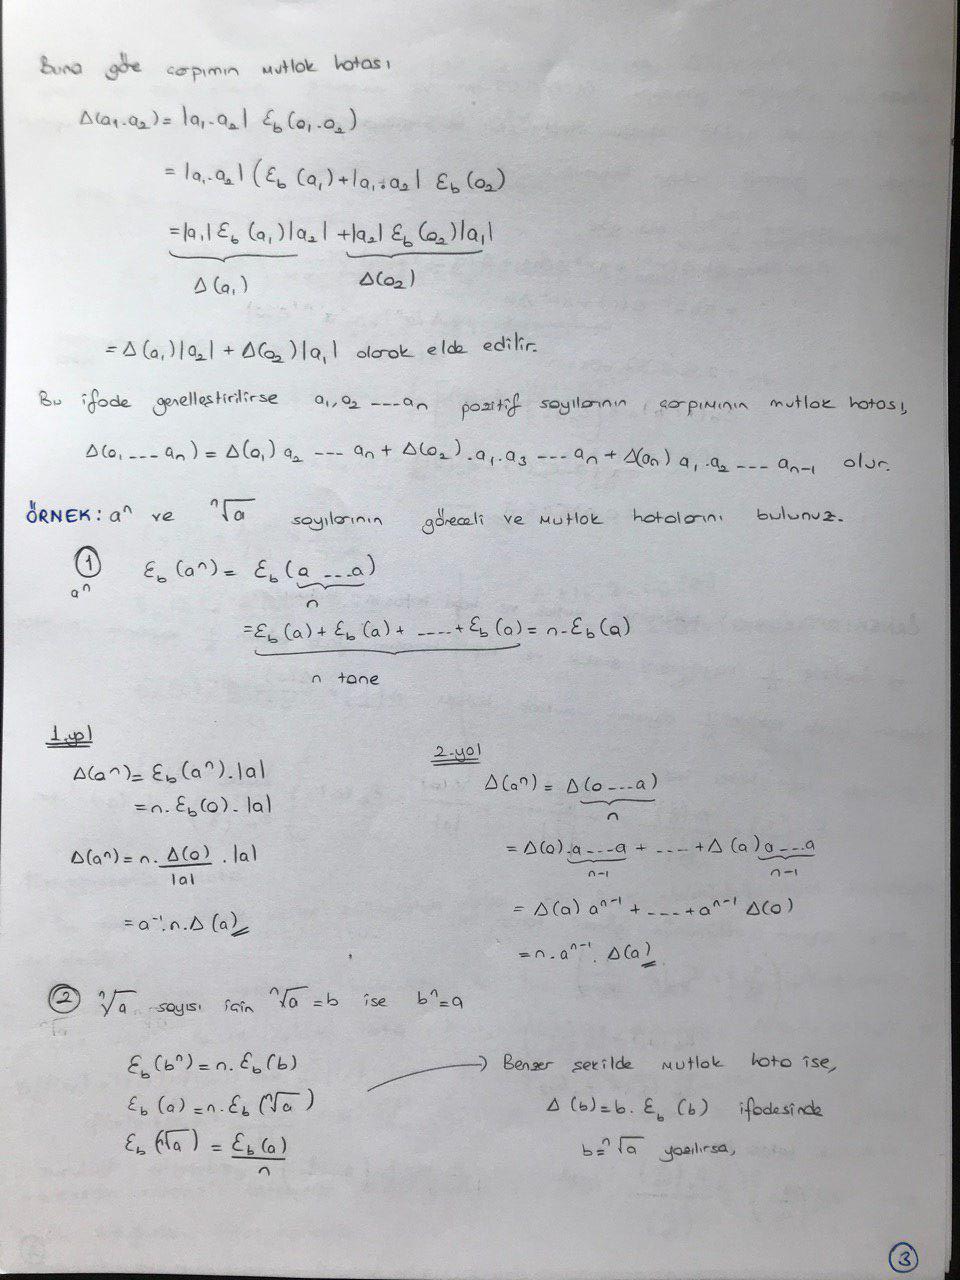 Buna göre çarpımın mutlak hatası
Δ(a₁.a₂) = |a₁.a₂| Ɛb(a₁.a₂)
= |a₁.a₂| (Ɛb (a₁) + |a₁.a₂| Ɛb(a₂)
= |a₁| Ɛb (a₁) |a₂| + |a₂| Ɛb(a₂) |a₁|
Δ(a₁) Δ(a₂)
= Δ(a₁)|a₂| + Δ(a₂)|a₁| olarak elde edilir.
Bu ifade genelleştirilirse a₁,a₂ ---an pozitif sayılarının çarpımının mutlak hatası,
Δ(a₁ --- an) = Δ(a₁) a₂ --- an + Δ(a₂).a₁.a₃ --- an + Δ(an) a₁.a₂ --- an-1 olur.
ÖRNEK: aⁿ ve ⁿ√a sayılarının göreceli ve mutlak hatalarını bulunuz.
① Ɛb (aⁿ) = Ɛb (a ---a)
aⁿ n
= Ɛb(a) + Ɛb(a) + ---- + Ɛb(a) = n.Ɛb(a)
n tane
1.yol
Δ(aⁿ) = Ɛb(aⁿ).|a|
= n.Ɛb(a).|a|
Δ(aⁿ) = n. Δ(a)/|a| .|a|
= a⁻¹.n.Δ(a)
2.yol
Δ(aⁿ) = Δ(a---a)
n
= Δ(a).a---a + ---- + Δ(a) a---a
n-1 n-1
= Δ(a) aⁿ⁻¹ + ---- + aⁿ⁻¹ Δ(a)
= n.aⁿ⁻¹. Δ(a)
② ⁿ√a sayısı için ⁿ√a = b ise bⁿ=a
Ɛb(bⁿ) = n.Ɛb(b)
Ɛb(a) = n.Ɛb(ⁿ√a)
Ɛb(ⁿ√a) = Ɛb(a)/n
→ Benzer şekilde mutlak hata ise,
Δ(b) = b. Ɛb (b) ifadesinde
b=ⁿ√a yazılırsa,
3